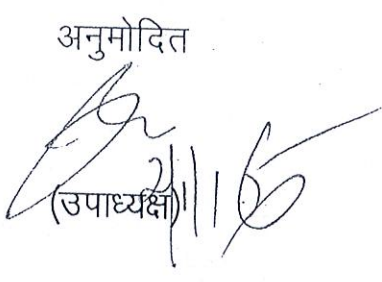 अनुमोदित
(उपाध्यक्ष)